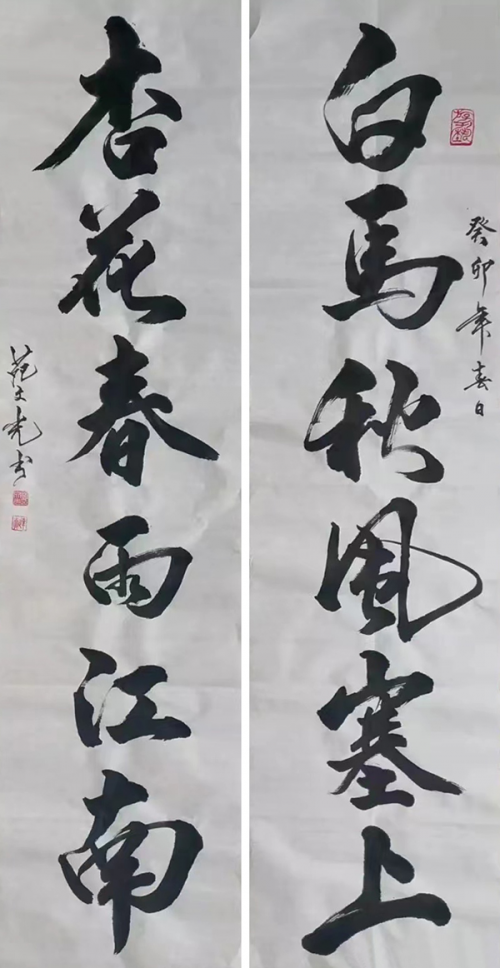 白马秋風塞上
癸卯年春日
杏花春雨江南
范文光书